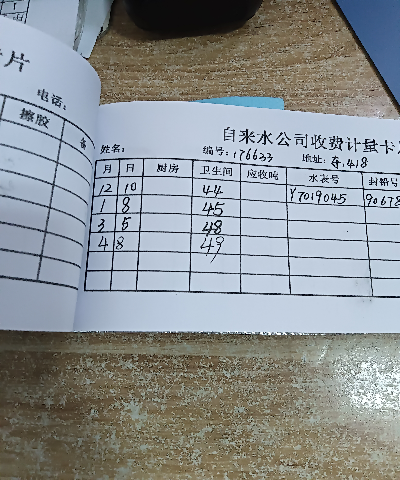 片
电话：
擦胶
自来水公司收费计量卡
姓名： 编号：176633 地址：东.418
月 日 厨房 卫生间 应收吨 水表号 封铅号
12 10 44 Y7019045 90678
1 8 45
3 5 48
4 8 49